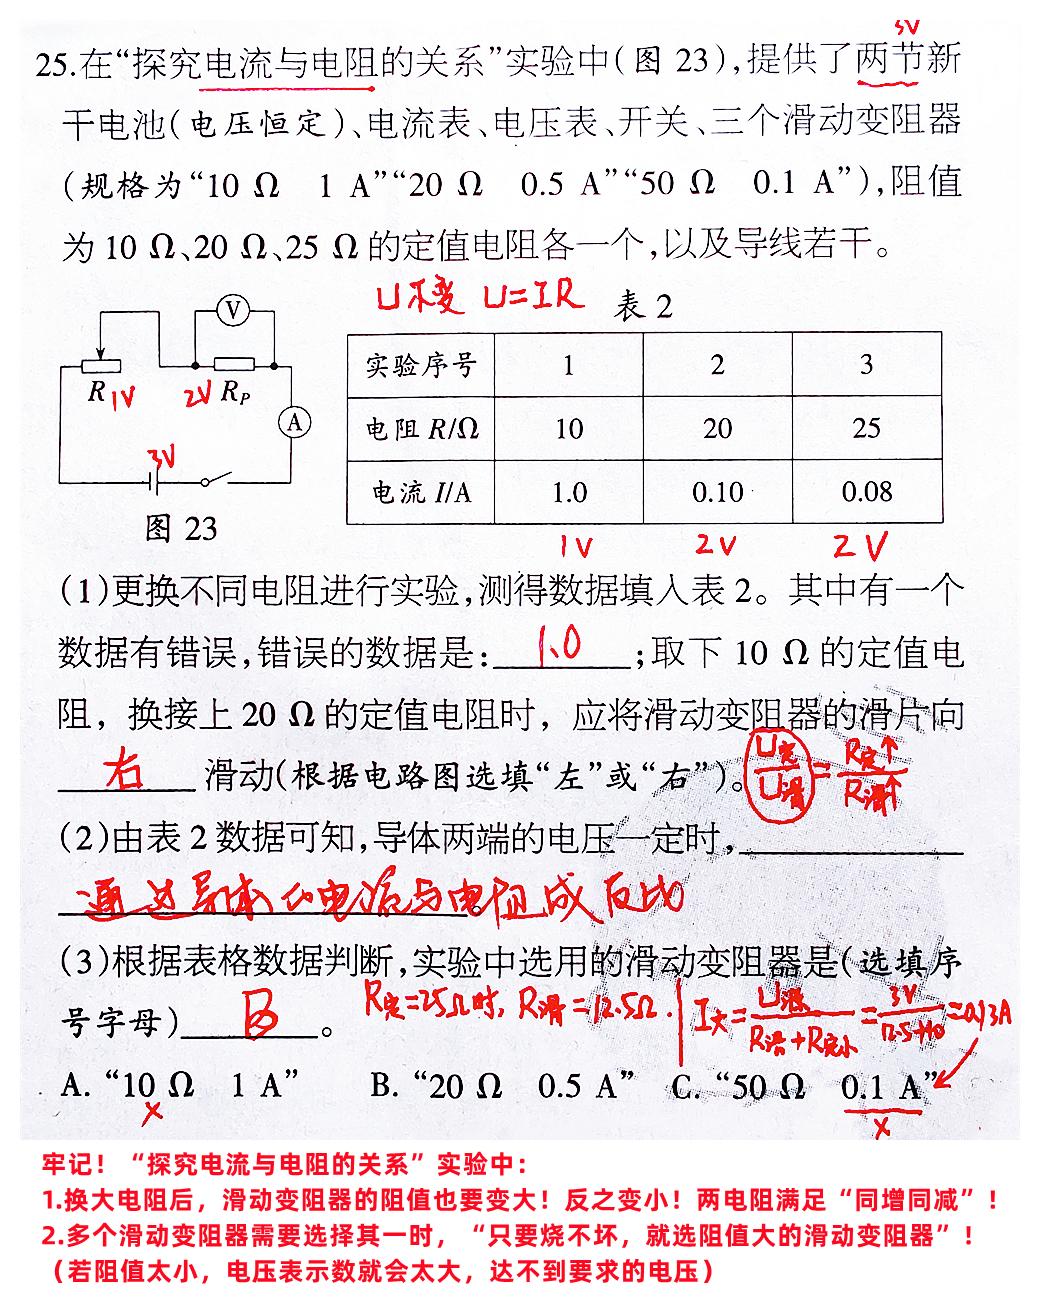 3V
25.在“探究电流与电阻的关系”实验中(图 23),提供了两节新
干电池(电压恒定)、电流表、电压表、开关、三个滑动变阻器
(规格为“10 Ω 1 A”“20 Ω 0.5 A”“50 Ω 0.1 A”),阻值
为 10 Ω、20 Ω、25 Ω 的定值电阻各一个,以及导线若干。
U不变 U=IR 表 2
V
R 1V 2V RP
A
3V
图 23
实验序号 1 2 3
电阻 R/Ω 10 20 25
电流 I/A 1.0 0.10 0.08
1V 2V 2V
(1)更换不同电阻进行实验,测得数据填入表 2。其中有一个
数据有错误,错误的数据是: 1.0 ;取下 10 Ω 的定值电
阻，换接上 20 Ω 的定值电阻时，应将滑动变阻器的滑片向
右 滑动(根据电路图选填“左”或“右”)。 U定/U滑=R定↑/R滑↑
(2)由表 2 数据可知,导体两端的电压一定时,
通过导体的电流与电阻成反比。
(3)根据表格数据判断,实验中选用的滑动变阻器是(选填序
R定=25Ω时, R滑=12.5Ω. I大=U源/(R滑+R定小)=3V/(12.5+10)=0.13A
号字母) B 。
A. “10 Ω 1 A” B. “20 Ω 0.5 A” C. “50 Ω 0.1 A”
× ×
牢记！“探究电流与电阻的关系”实验中：
1.换大电阻后，滑动变阻器的阻值也要变大！反之变小！两电阻满足“同增同减”！
2.多个滑动变阻器需要选择其一时，“只要烧不坏，就选阻值大的滑动变阻器”！
（若阻值太小，电压表示数就会太大，达不到要求的电压）